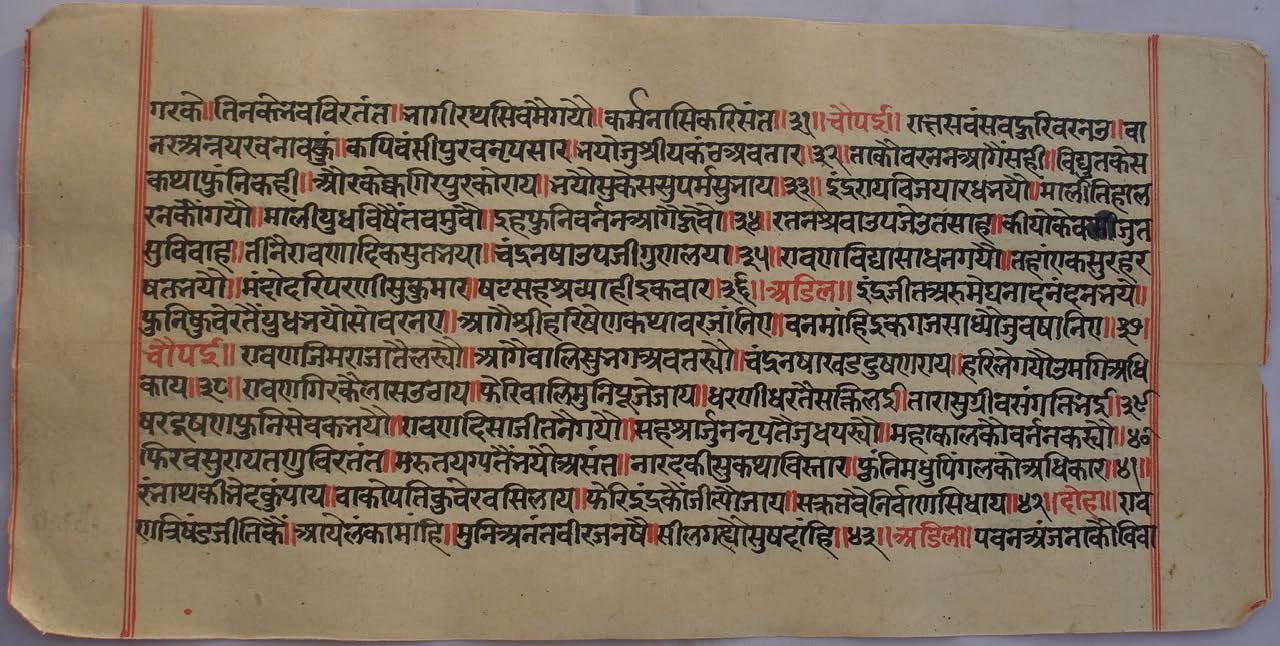 गरके॥तिनकेभेवविरतंत॥भागीरथसिवमैगयौ॥कर्मनासिकरिसंत॥३१॥चौपई॥राक्षसवंसवहुरिवरनउ॥वा
नरअन्नयरवनावकुं॥कपिवंसीपुरवनृपसार॥भयोजुश्रीयकंठअवतार॥३२॥ताकौवरननआगैंसही॥विद्युतकेस
कथाफुंनिकही॥औरकेष्कगिरपुरकोराय॥भयौसुकेससुपर्मसुभाय॥३३॥इंद्ररायविजयारधभयौ॥मालीतिहाल
रनकौंगयौ॥मालीयुधविषैंतवमुवौ॥इहफुनिवर्ननआगैहुवौ॥३४॥रतनश्रवाउपजेउतसाह॥कीयोकेक सीजुत
सुविवाह॥तीनैरावणादिकसुतभया॥चंद्रनषाउपजीगुणलया॥३५॥रावणविद्यासाधनगयौ॥तहांएकसुरहर
षतभयौ॥मंदोदरिपरणीसुकुमार॥षटसहश्रव्याहीइकवार॥३६॥अडिल॥इंद्रजीतअरुमेघनादनंदनभये॥
फुनिकुवेरतैंयुधभयौसोवरनए॥आगैश्रीहरिषेणकथावरजांनिए॥वनमांहिइकगजसाध्यौजुवषानिए॥३७॥
चौपई॥रावणजिमराजातैलस्यौ॥आगैवालिसुभगअवतस्यौ॥चंद्रनषाखडदुषणराय॥हरिलेगयौउमगिअधि
काय॥३८॥रावणगिरकैलासउठाय॥फेरिवालिमुनिपूजेजाय॥धरणीधरतैसक्तिलई॥तारासुग्रीवसंगतिभई॥३९
षरदूषणफुनिसेवकभयौ॥रावणदिसाजीतनैगयौ॥सहश्रार्जुननृपतैजुधपस्यौ॥महाकालकौवर्ननकस्यौ॥४०
फिरवसुरायतणुविरतंत॥मरुतयग्यतैंभयौअसंत॥नारदकीसुकथाविस्तार॥फुंनिमधुपिंगलकोअधिकार॥४१॥
रंभाथकीभेदकुंपाय॥वाकोपतिकुवेरवसिलाय॥फेरिइंद्रकौंजीत्योजाय॥सक्रतवेनिर्वाणसिधाय॥४२॥दोहा॥राव
णत्रिषंडजीतिकैं॥आयेलंकामांहि॥मुनिअनंतवीरजनषै॥सीलगह्यौसुषदांहि॥४३॥अडिल॥पवनअंजनाकौविवा